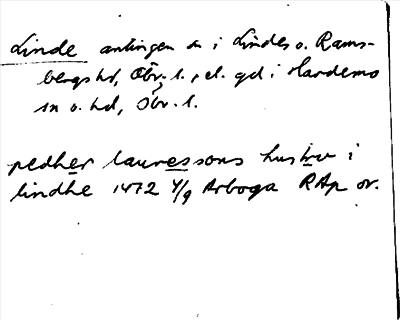 Linde antingen sn i Lindes o. Rams-
bergs hd, Öbr. l., el. gd i Hardemo
sn o. hd, Öbr. l.
pedher lauressons hustru i
lindhe 1472 4/9 Arboga RAp or.